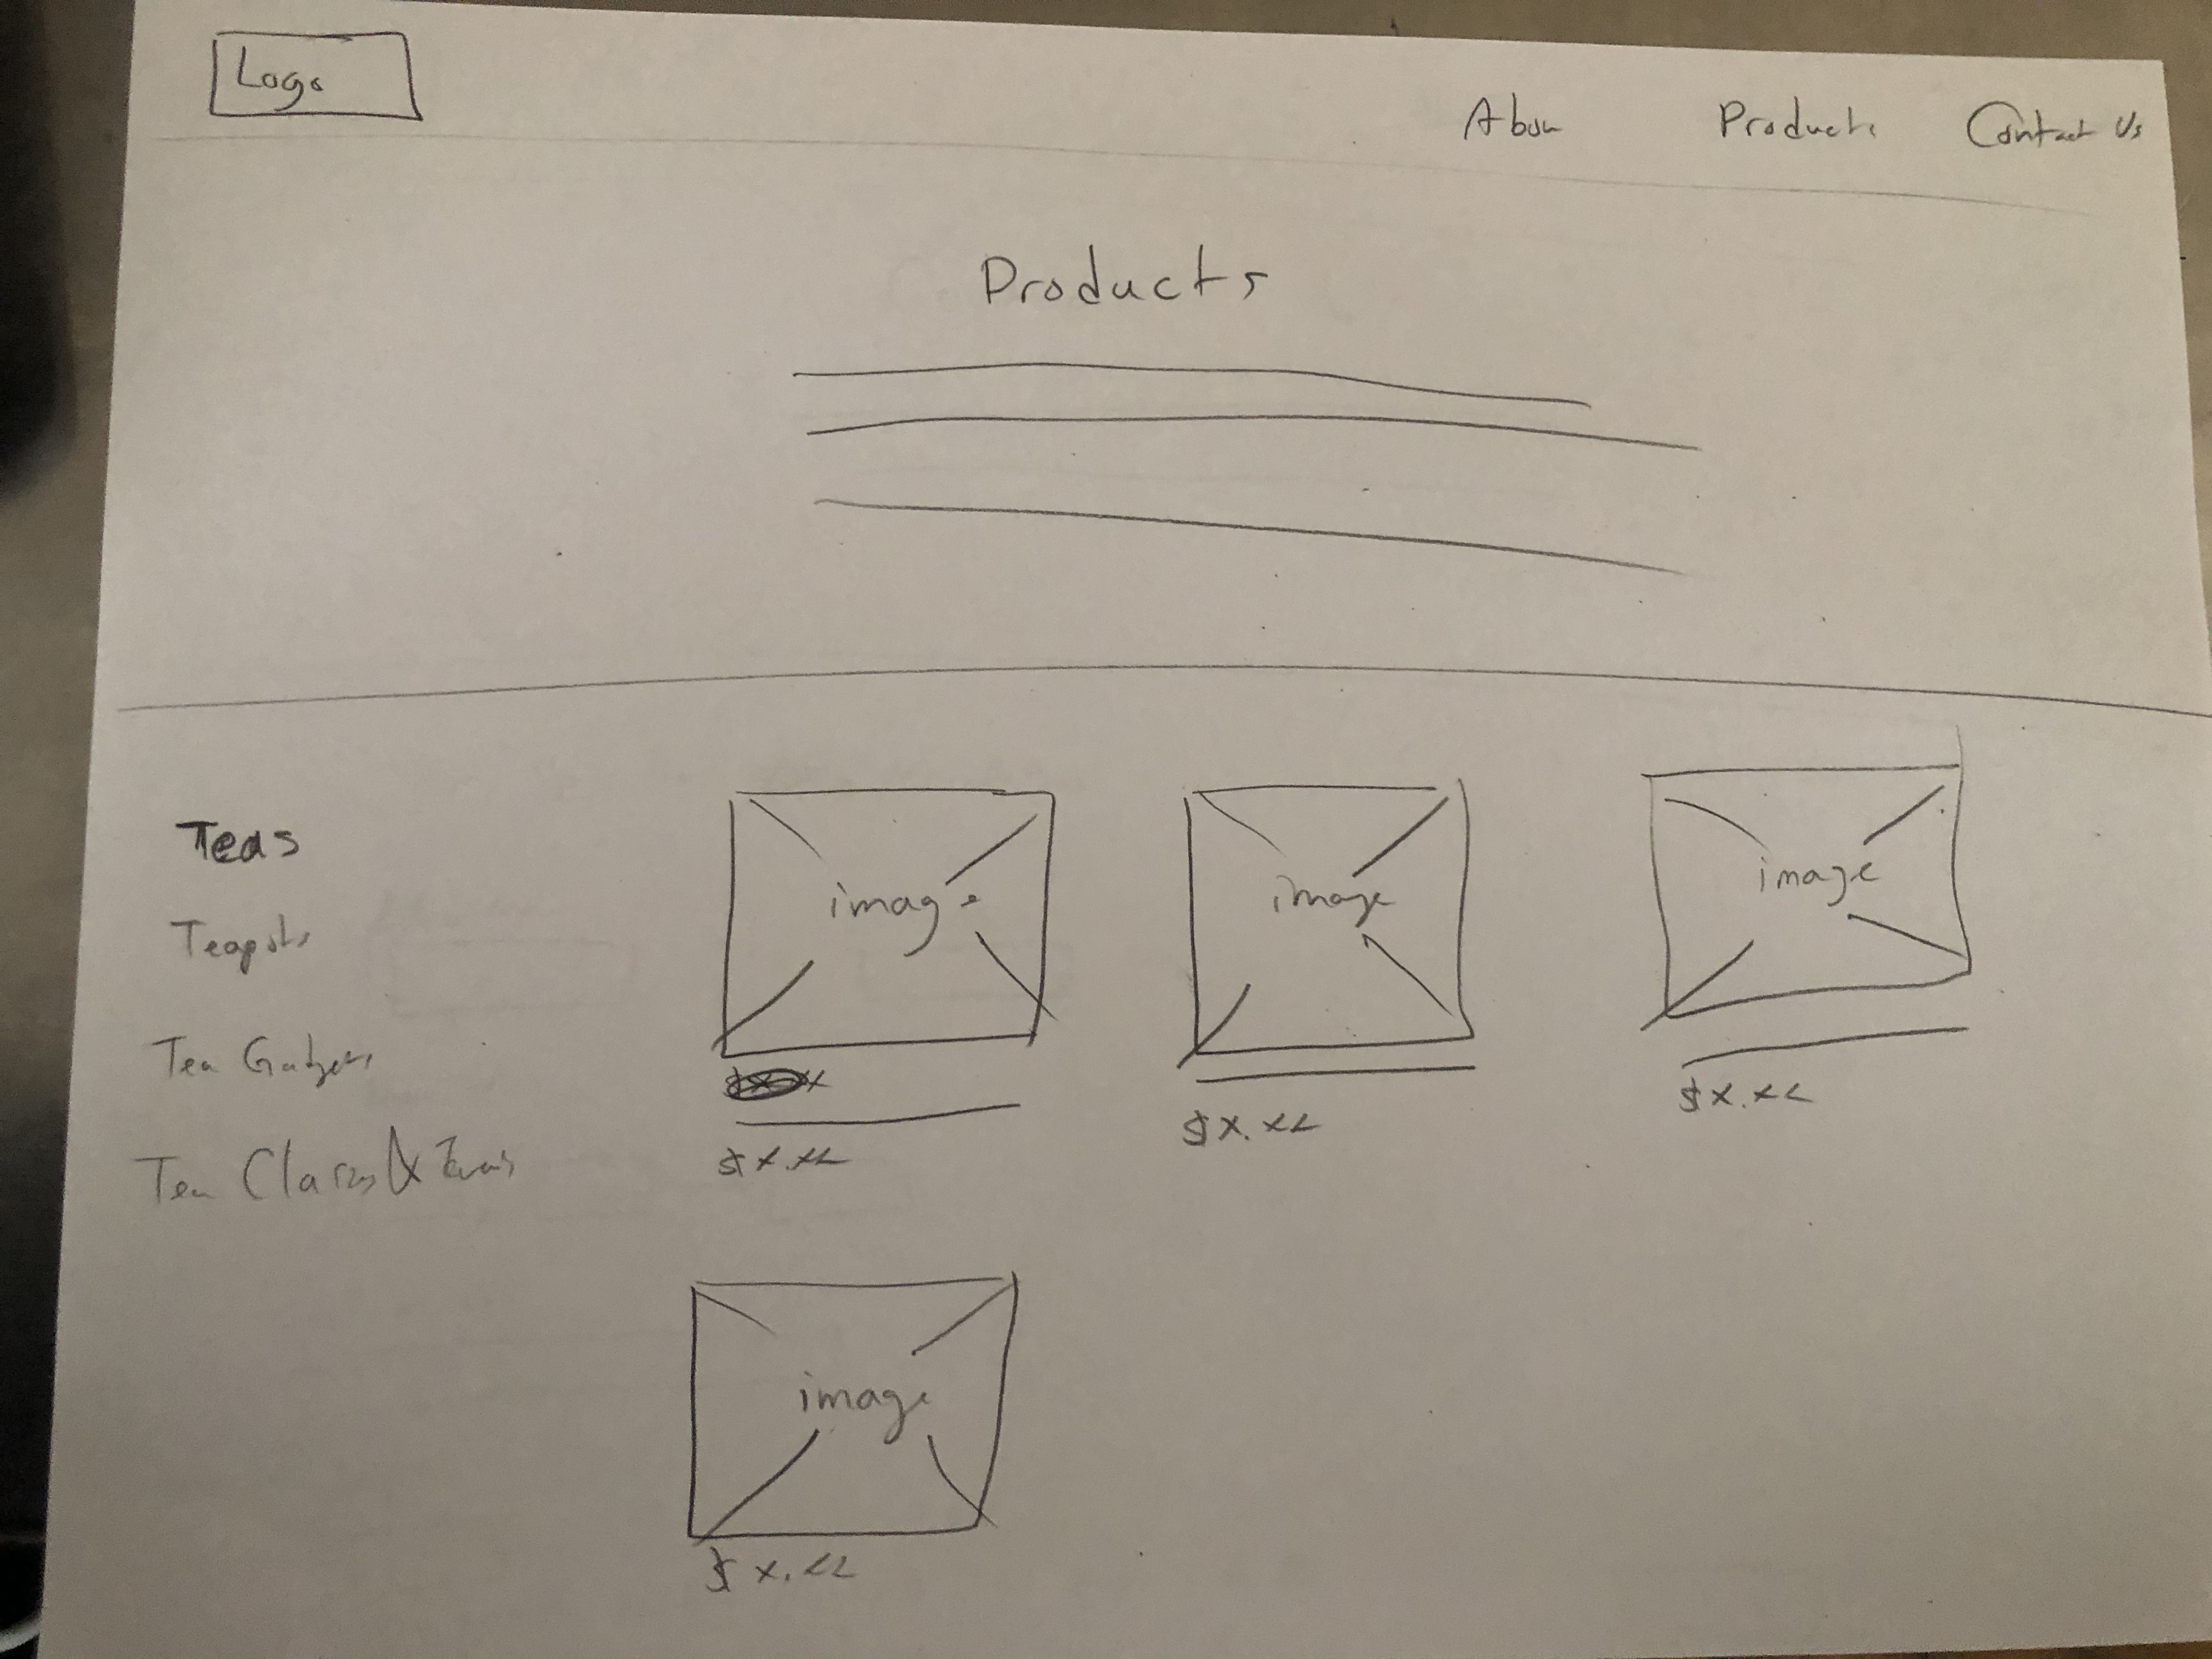 Logo
Abou
Products
Contact Us
Products
Teas
Teapots
Tea Gadgets
Tea
image
image
image
$x.xx
$x.xx
$x.xx
image
$x.xx